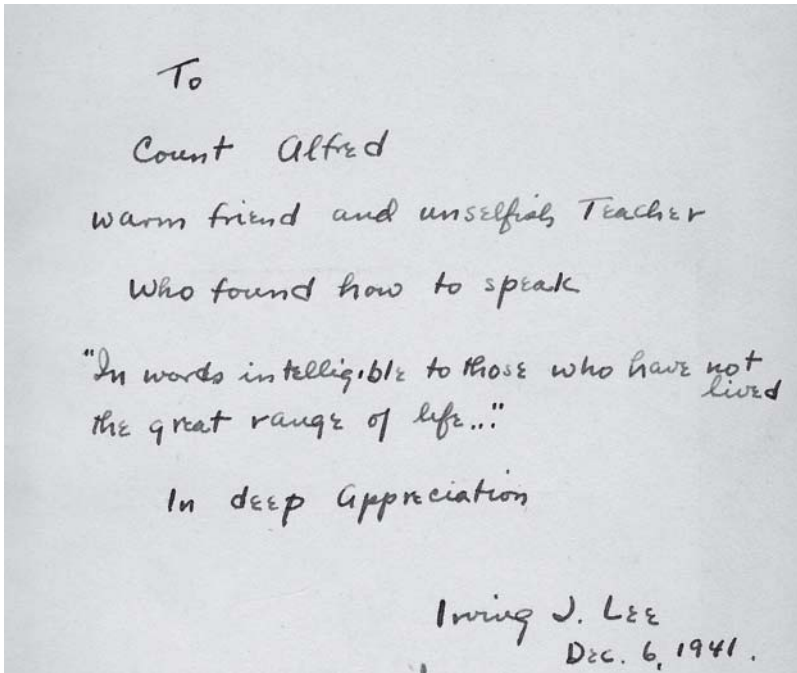 To
Count Alfred
warm friend and unselfish Teacher
who found how to speak
"In words intelligible to those who have not
lived
the great range of life..."
In deep appreciation
Irving J. Lee
Dec. 6, 1941.